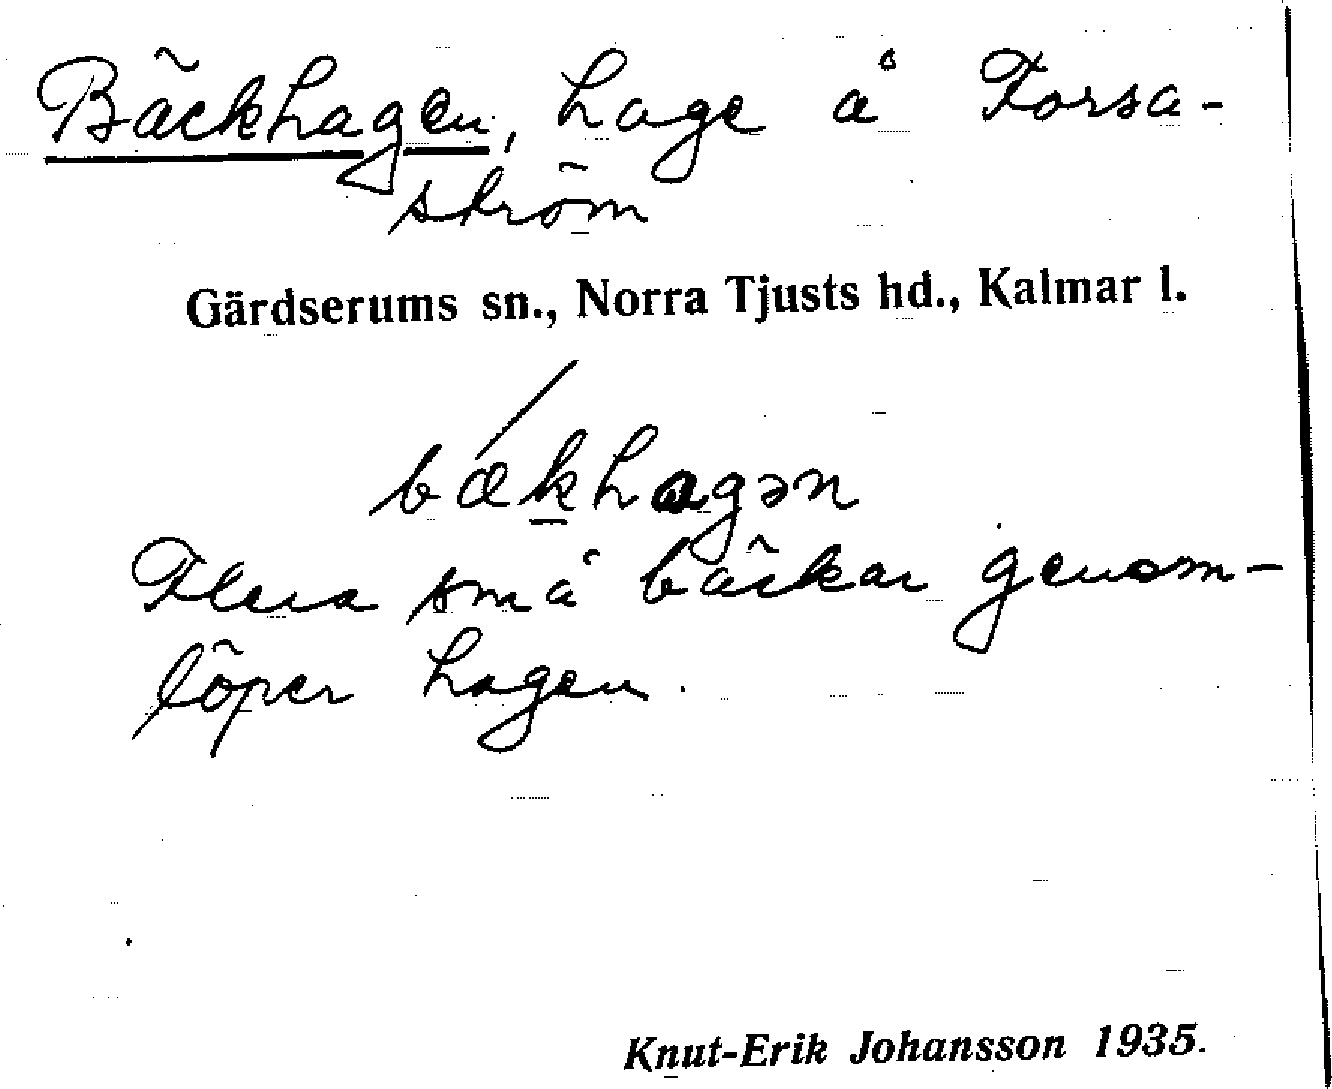 Bäckhagen, hage å Forsa-
ström
Gärdserums sn., Norra Tjusts hd., Kalmar l.
bækhagən
Flera små bäckar genom-
löper hagen.
Knut-Erik Johansson 1935.